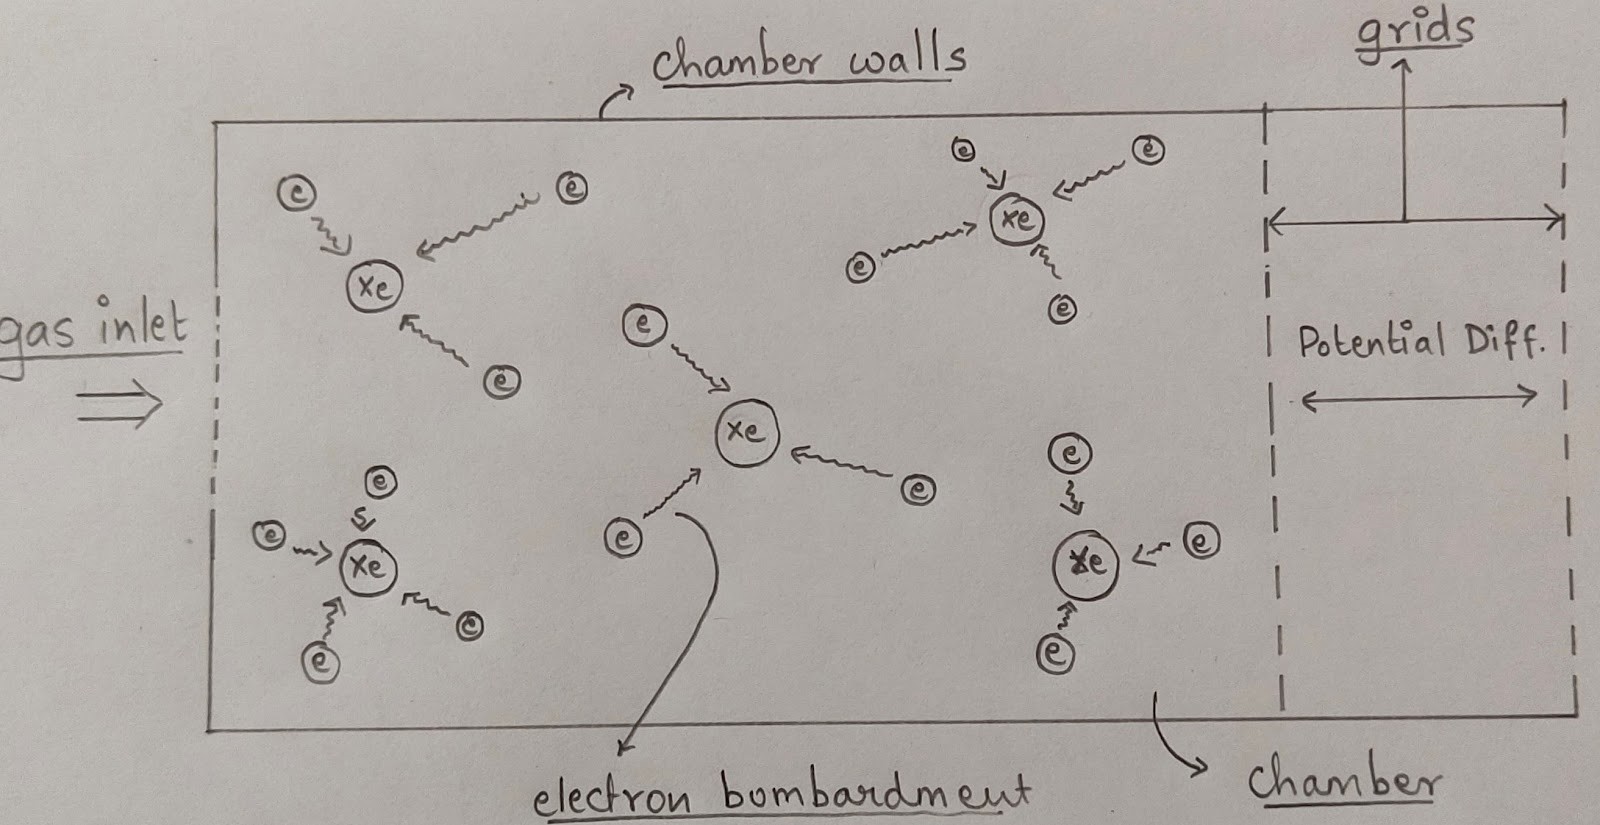 grids
chamber walls
e
e
e
e
Xe
e
Xe
e
e
gas inlet
e
Potential Diff.
e
Xe
e
e
e
e
e
Xe
Xe
e
e
e
e
e
electron bombardment
chamber